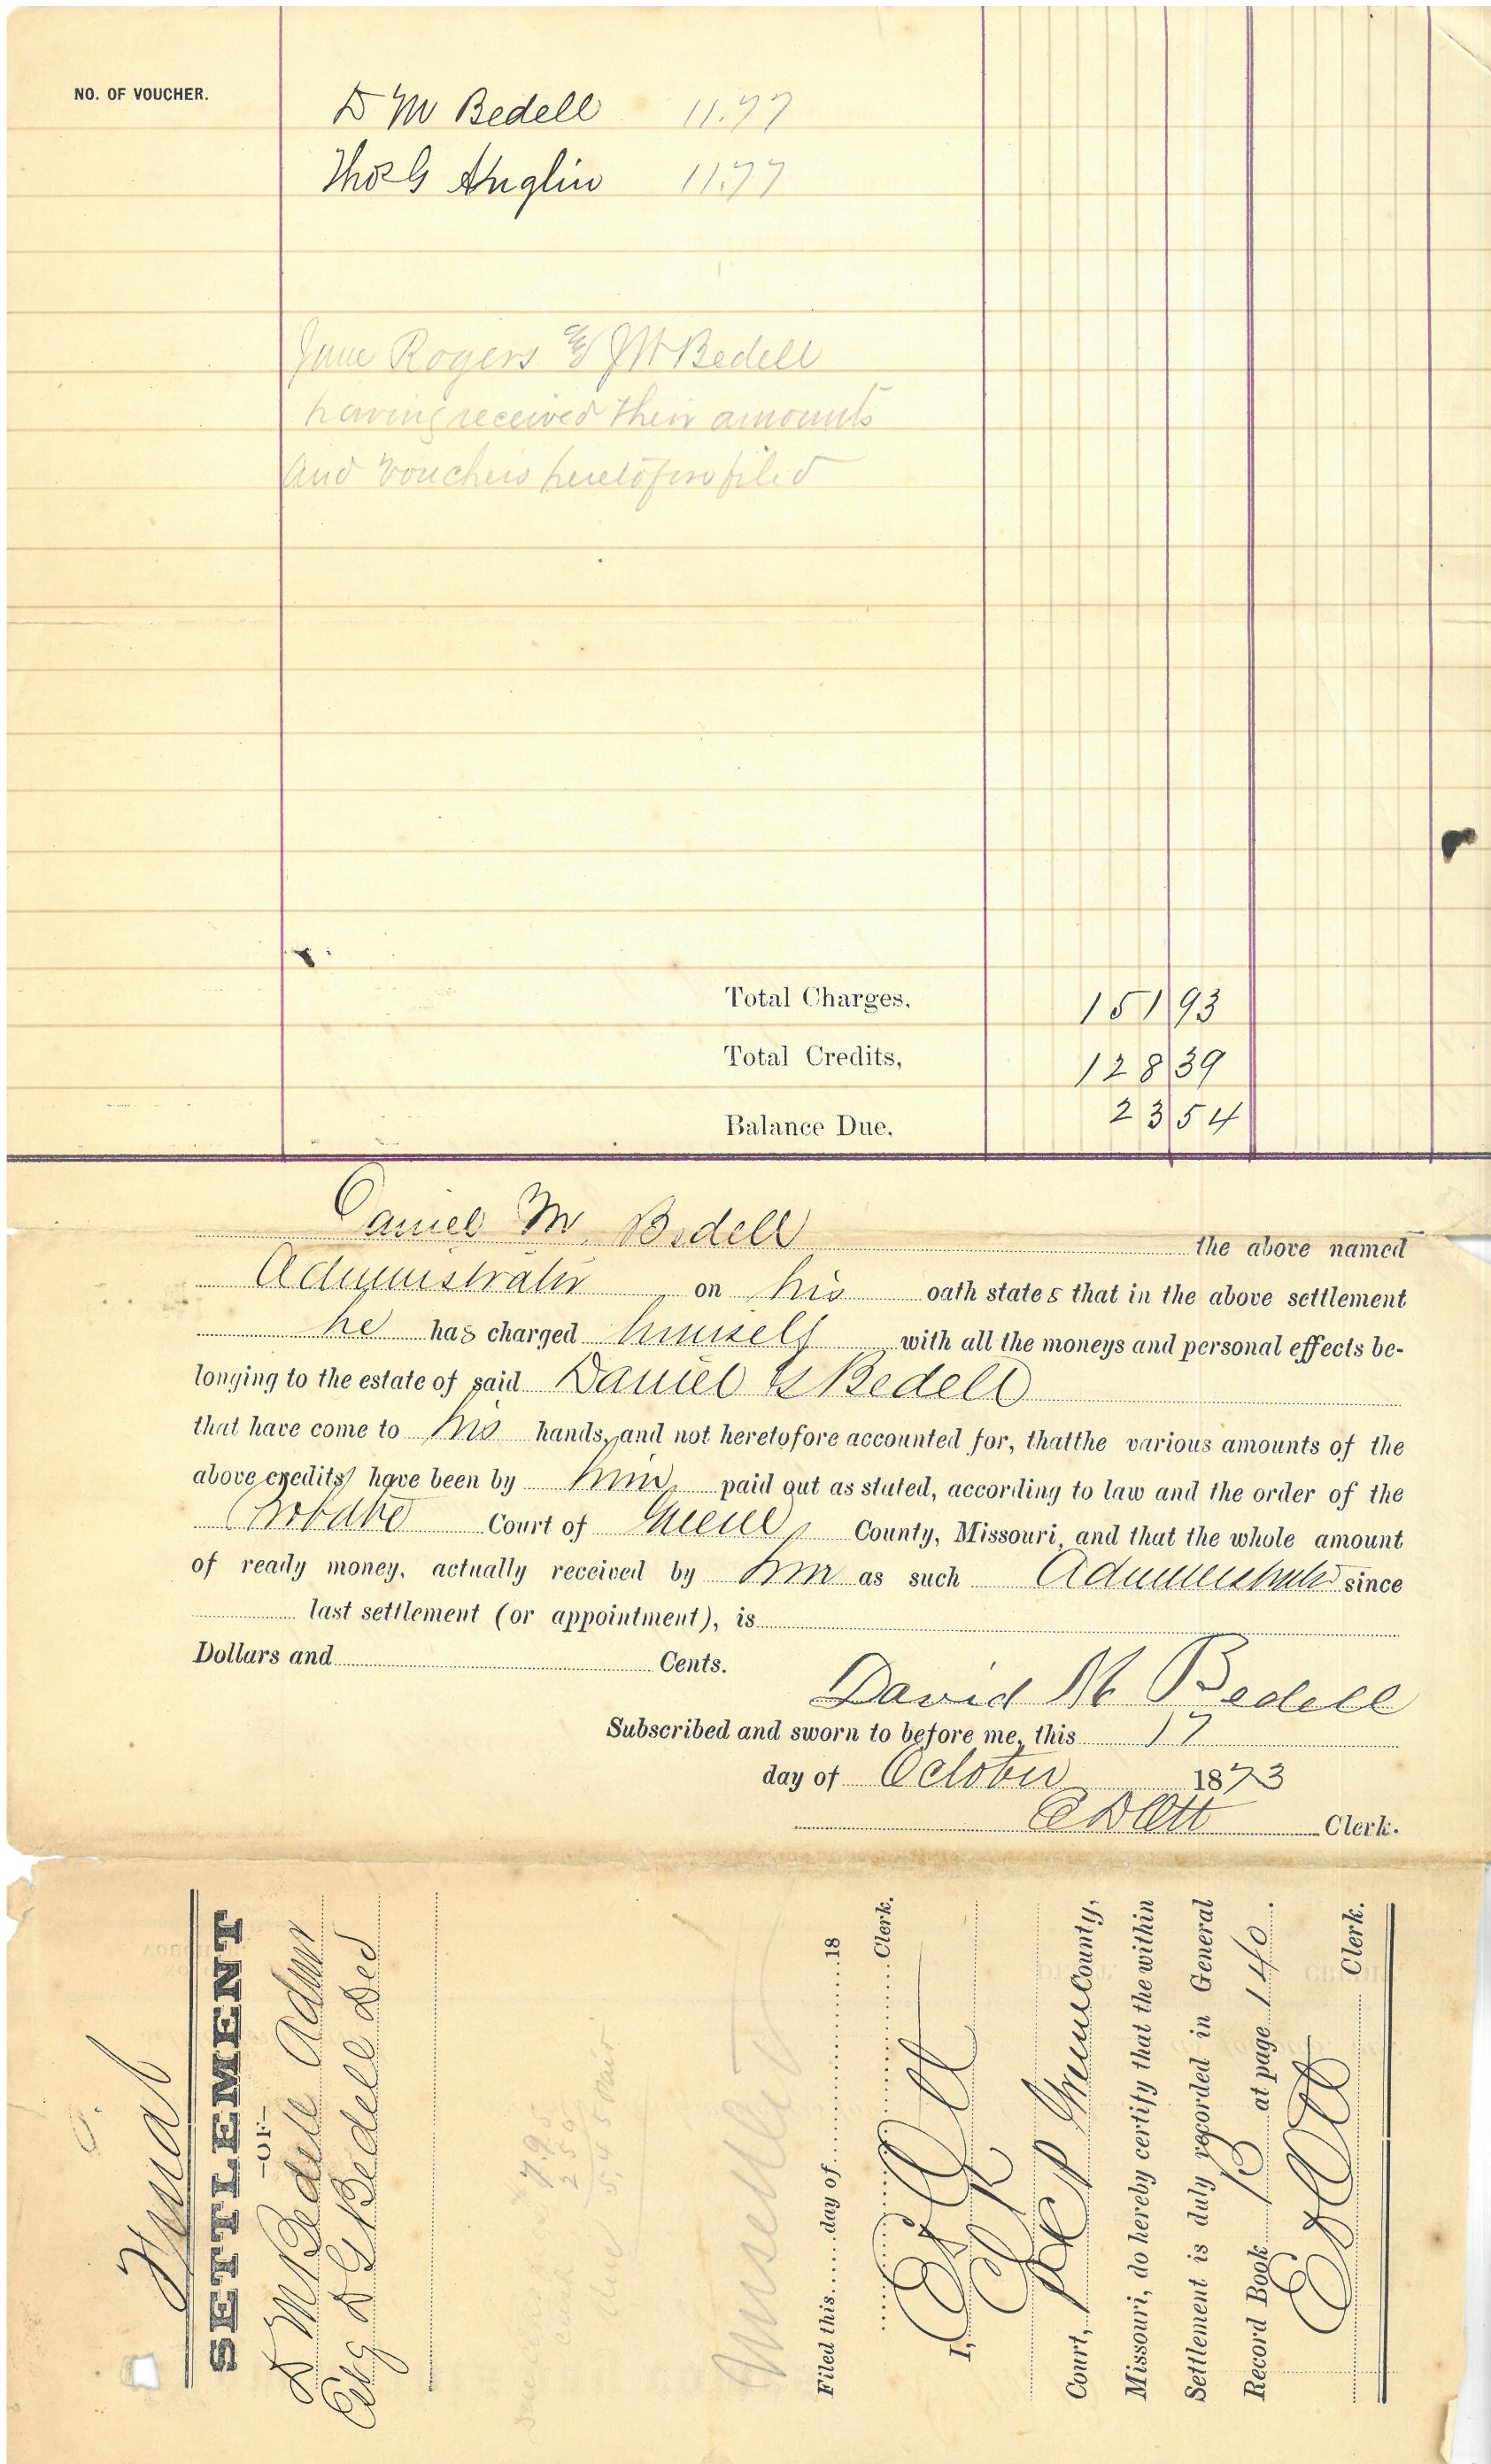 NO. OF VOUCHER.
D M Bedell 11.77
Thos G Anglin 11.77
Jane Rogers & J W Bedell
having received their amounts
and vouchers heretofore filed
Total Charges, 151 93
Total Credits, 128 39
Balance Due, 23 54
Daniel M Bedell the above named
Administrator on his oath states that in the above settlement
he has charged himself with all the moneys and personal effects be-
longing to the estate of said Daniel G Bedell
that have come to his hands, and not heretofore accounted for, thatthe various amounts of the
above credits have been by him paid out as stated, according to law and the order of the
Probate Court of Greene County, Missouri, and that the whole amount
of ready money, actually received by him as such Administrator since
last settlement (or appointment), is
Dollars and Cents.
David M Bedell
Subscribed and sworn to before me, this 17
day of October 1873
E D Ott Clerk.
Final
SETTLEMENT
—OF—
D M Bedell Admr
Est D G Bedell Decd
7.95
2 50
5,45
Filed this day of 18
E D Ott Clerk.
I,
Court, Greene County,
Missouri, do hereby certify that the within
Settlement is duly recorded in General
Record Book B at page 140.
E D Ott Clerk.